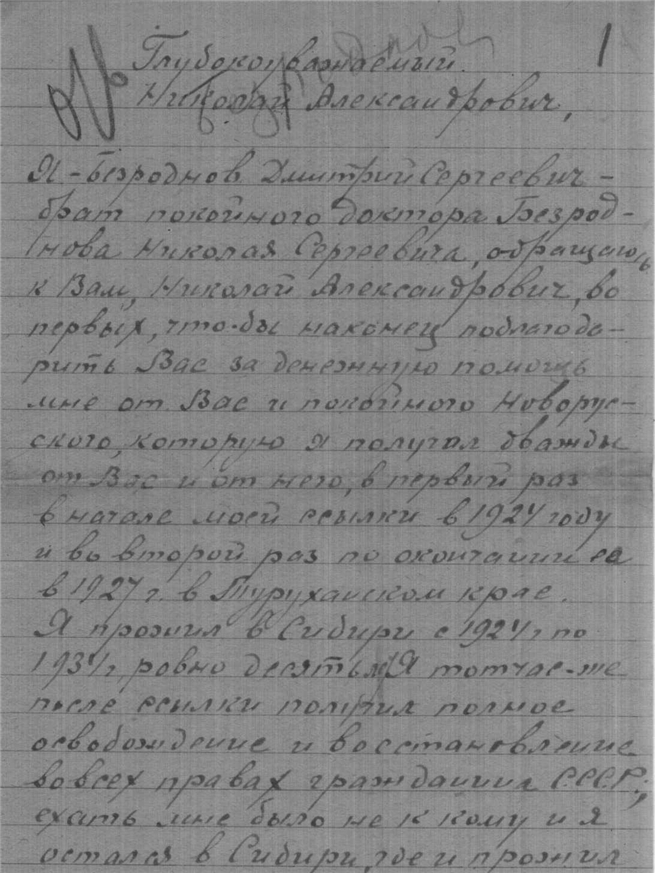 1
Глубокоуважаемый
Николай Александрович,
Я - Безроднов Дмитрий Сергеевич -
брат покойного доктора Безрод-
нова Николая Сергеевича, обращаюсь
к Вам, Николай Александрович, во
первых, что-бы наконец поблагода-
рить Вас за денежную помощь
мне от Вас и покойного Новорус-
ского, которую я получал дважды
от Вас и от него, в первый раз
в начале моей ссылки в 1924 году
и во второй раз по окончании ея
в 1927 г. в Туруханском крае.
Я прожил в Сибири с 1924 г по
1934 г, ровно десять л Я тотчас-же
после ссылки получил полное
освобождение и восстановление
во всех правах гражданина С.С.С.Р.;
ехать мне было не к кому и я
остался в Сибири, где и прожил